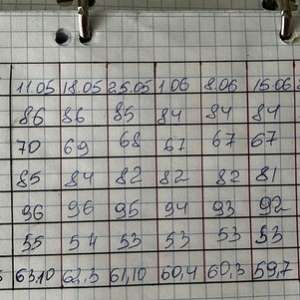 11.05 18.05 25.05 1.06 8.06 15.06
86 86 85 84 84 84
70 69 68 67 67 67
85 84 82 82 82 81
96 96 95 94 93 92
55 54 53 53 53 53
63,10 62,3 61,10 60,4 60,3 59,7